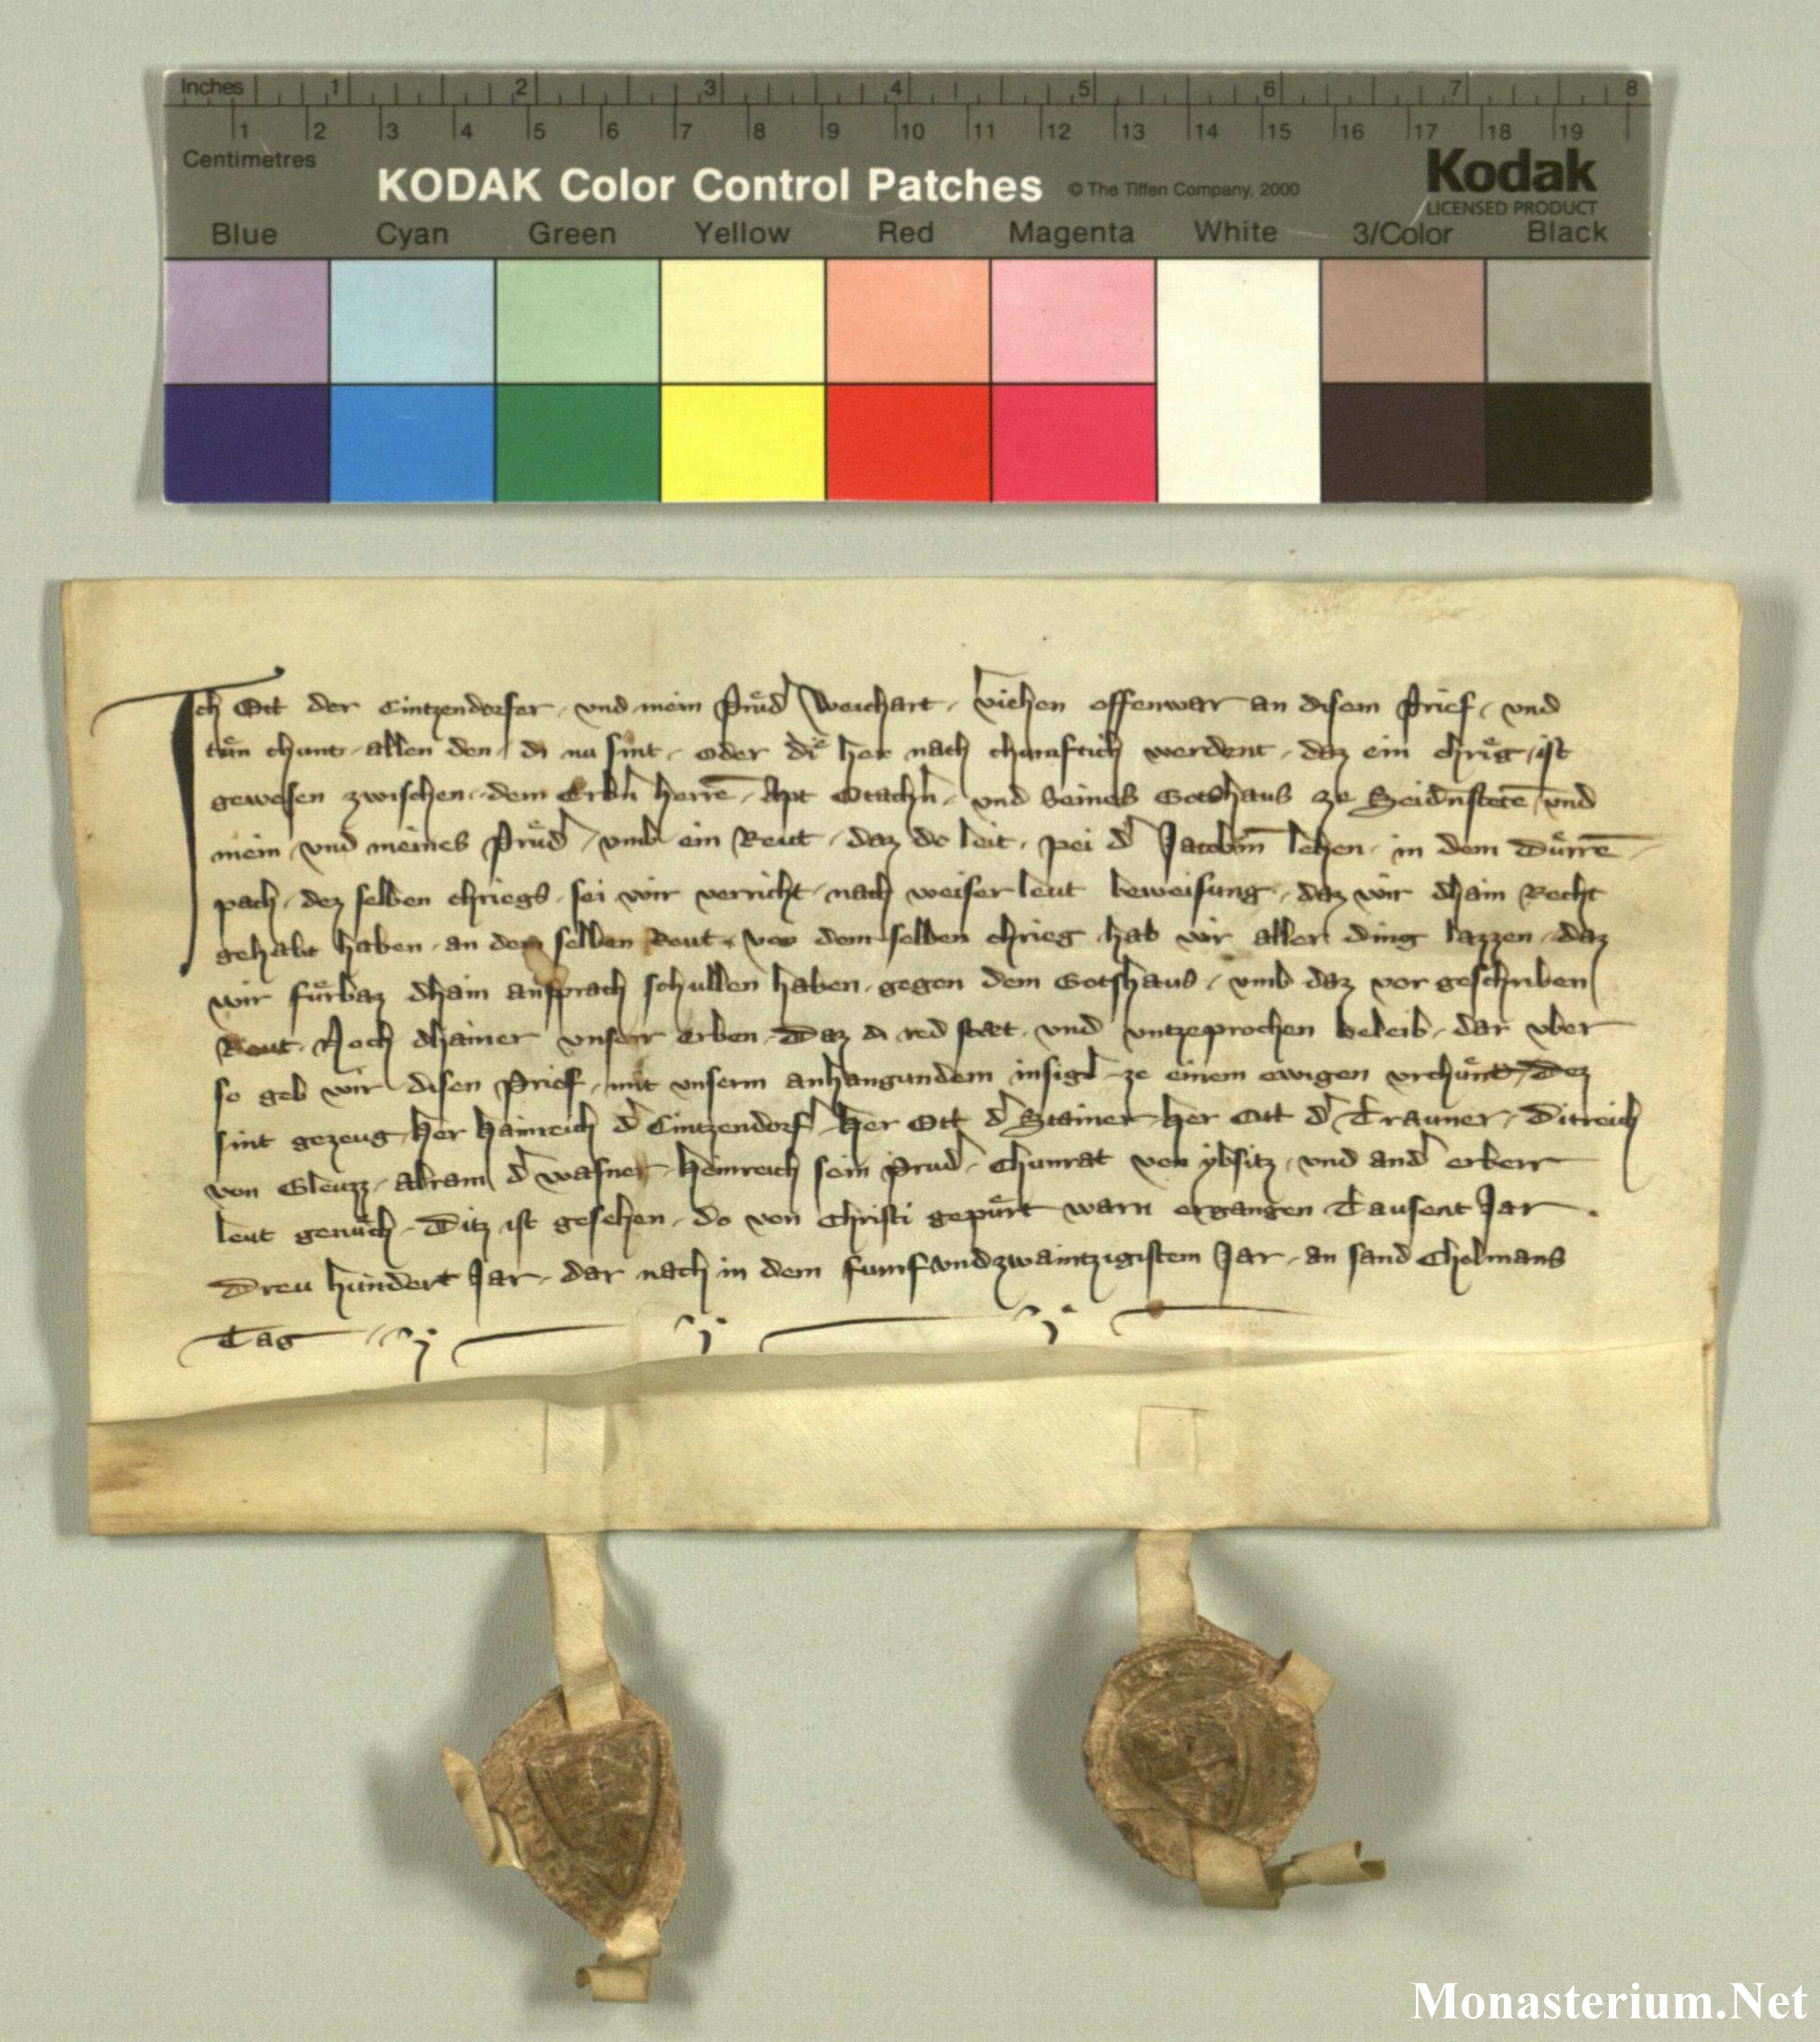 Inches 1 2 3 4 5 6 7 8
1 2 3 4 5 6 7 8 9 10 11 12 13 14 15 16 17 18 19
Centimetres
KODAK Color Control Patches © The Tiffen Company, 2000 Kodak
LICENSED PRODUCT
Blue Cyan Green Yellow Red Magenta White 3/Color Black
Ich Ott der Cintzendorfer, und mein Průd Weichart, viehen offenwar an disem Prief, und
tůn chunt allen den, di nu sint, oder di her nach chumftich werdent, daz ein chrig ist
gewesen zwischen dem Erbn herrē, Apt Otachn, und seines Gotshaus ze Seidnstetē, und
mein, und meines Průd, umb ein Reut, daz do leit, pei d Jacobin lehen, in dem Důrrē
pach, dez selben chriegs, sei wir verricht, nach weiser leut beweisung, daz wir dhain Recht
gehabt haben, an dem selben Reut, von dem selben chrieg, hab wir aller ding lazzen, daz
wir fůrbaz dhain ansprach schullen haben, gegen dem Gotshaus, umb daz vor geschriben
Reut, Noch dhainer unserr erben, Daz di red stæt, und untzeprochen beleib, dar uber
so geb wir disen Prief, mit unserm anhangundem insigl, ze einem ewigen urchůnt, Dez
sint gezeug, Her Hainreich d Cintzendorf, Her Ott d Stainer, Her Ott d Trauner, Ditreich
von Gleuzz, Abram d wasner, Heinreich sein Prud, Chunrat von ybsitz, und and erberr
leut genůch, Ditz ist geschen, do von Christi gepůrt warn ergangen Tausent Jar.
Dreu hundert Jar, dar nach in dem fumfundzwaintzigistem Jar, an sand Cholmans
Tag
Monasterium.Net